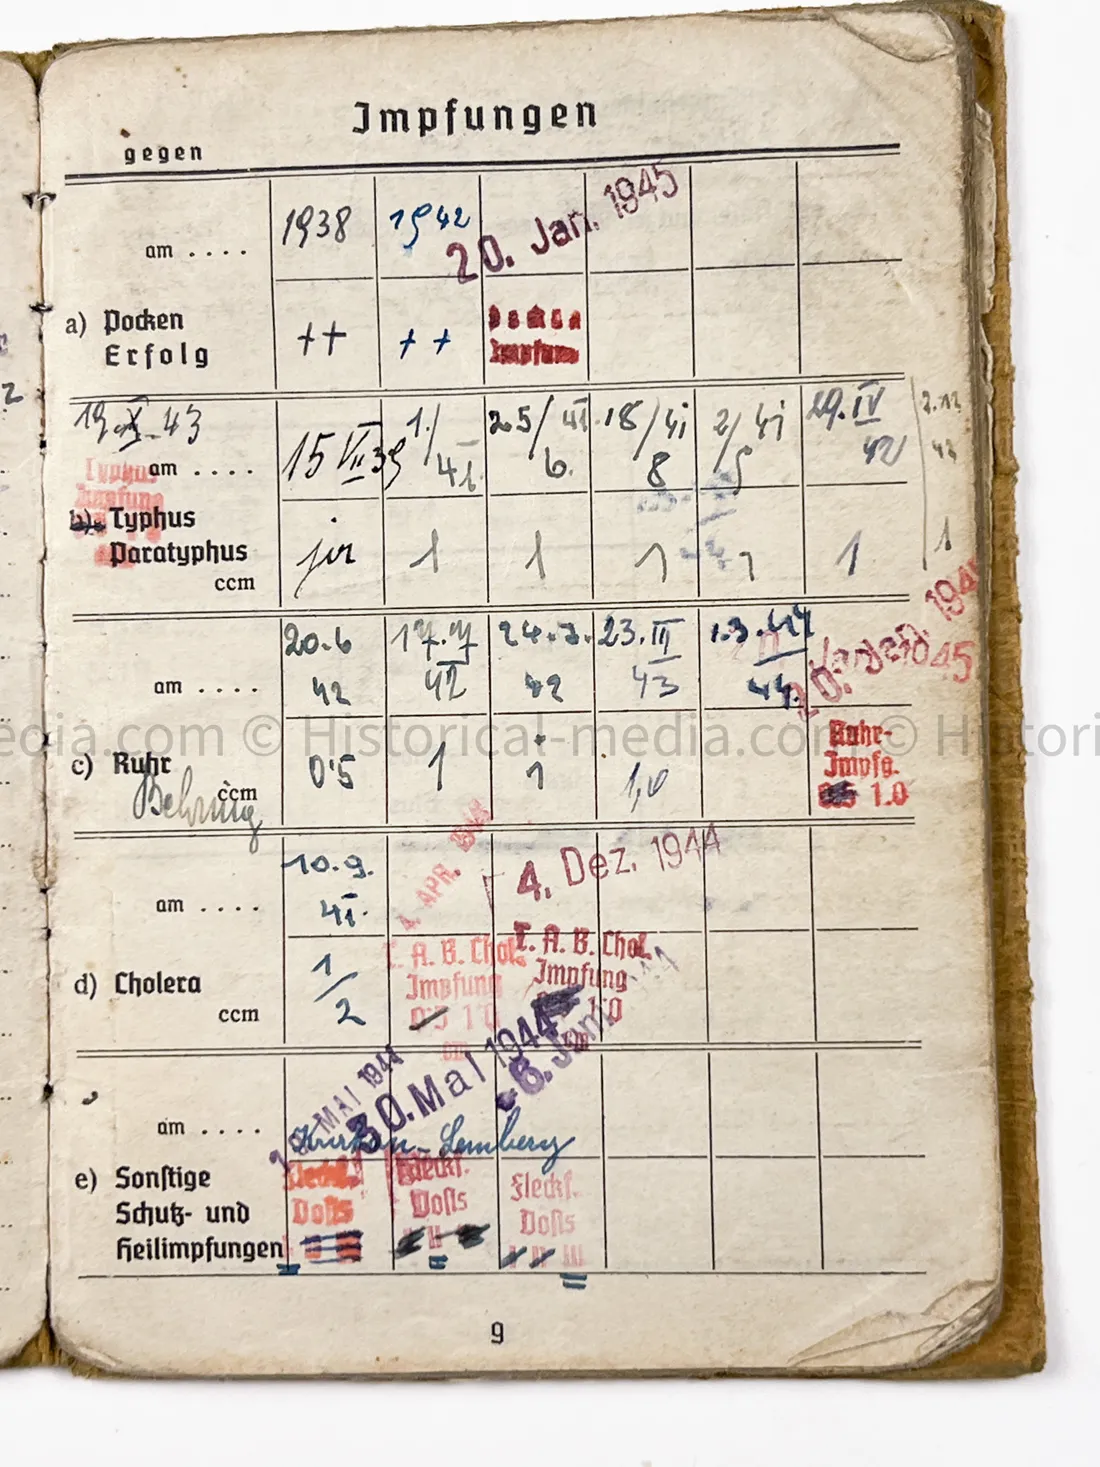 Impfungen
gegen
am . . . .
1938
1942
20. Jan. 1945
a) Pocken
Erfolg
++
++
Impfung
19. X. 43
am . . . .
15 VII 39
1./
25/
6.
18/41
8
2/41
9
29. IV
42
2.12
43
Typhus
Impfung
b) Typhus
Paratyphus
ccm
1
1
1
1
1
1
am . . . .
20.6
42
17.7
42
24.7.
42
23. III
43
1.3.44
44.
20.
1945
45
c) Ruhr
ccm
Behring
0'5
1
1
1,0
Ruhr-
Impfg.
1.0
am . . . .
10.9.
41.
APR.
4. Dez. 1944
d) Cholera
ccm
1/2
T. A. B. Chol.
Impfung
0'5 1'0
T. A. B. Chol.
Impfung
1'0
am . . . .
MAI 1944
30. Mai 1944
6. Juni
Lemberg
e) Sonstige
Schutz- und
Heilimpfungen
Fleckf.
Dosis
Fleckf.
Dosis
II
Fleckf.
Dosis
I II III
9
edia.com © Historical-media.com © Histori